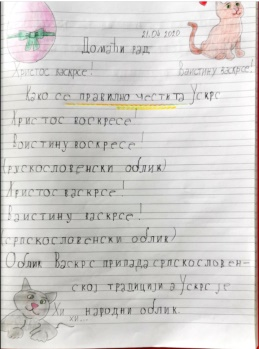 21.04 2020
Домаћи рад
Христос васкрсе! Ваистину васкрсе!
Како се правилно честита Ускрс
Христос воскресе!
Воистину воскресе!
(рускословенски облик)
Христос васкрсе!
Ваистину васкрсе!
(српскословенски облик)
Облик Васкрс припада српскословен-
ској традицији а Ускрс је
Хи народни облик.
хи..